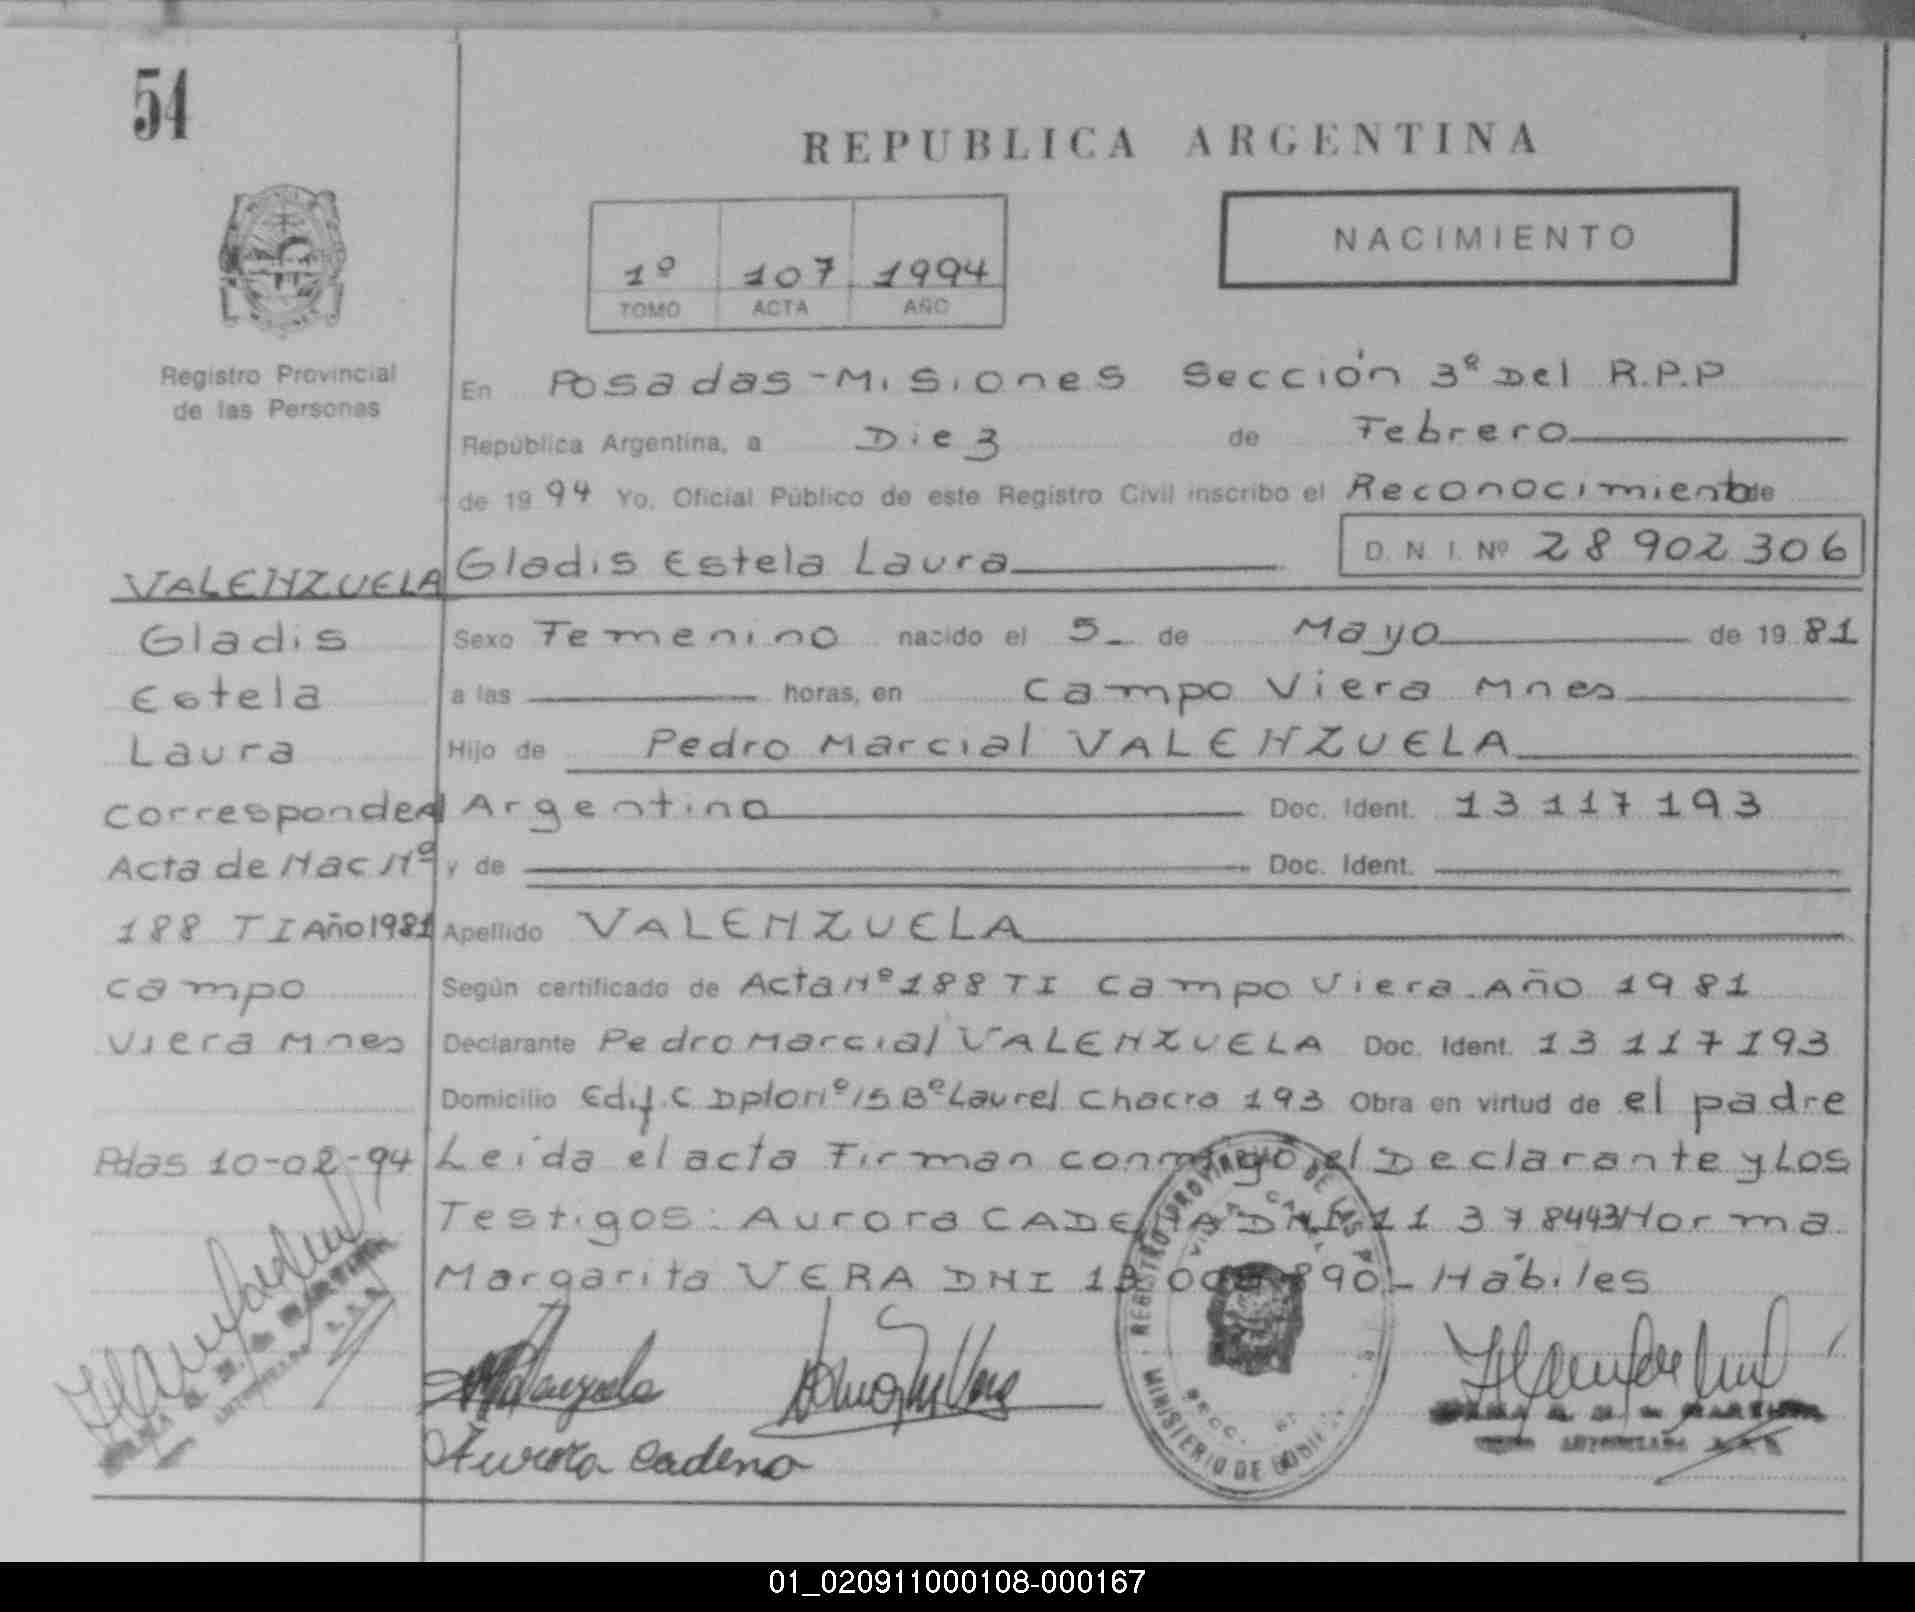 54
REPUBLICA ARGENTINA
NACIMIENTO
1º 107 1994
TOMO ACTA AÑO
Registro Provincial
de las Personas
En Posadas-Misiones Sección 3ª Del R.P.P
República Argentina, a Diez de Febrero
de 19 94 Yo, Oficial Público de este Registro Civil inscribo el Reconocimiento de
Gladis Estela Laura D. N. I. Nº 28 902 306
Sexo Femenino nacido el 5 de Mayo de 19 81
a las horas, en Campo Viera Mnes
Hijo de Pedro Marcial VALENZUELA
Argentino Doc. Ident. 13 117 193
y de Doc. Ident.
Apellido VALENZUELA
Según certificado de Acta Nº 188 TI Campo Viera Año 1981
Declarante Pedro Marcial VALENZUELA Doc. Ident. 13 117 193
Domicilio Edif. C Dpto Nº 15 Bº Laurel Chacra 193 Obra en virtud de el padre
Leída el acta Firman conmigo el Declarante y Los
Testigos: Aurora CADENA DNI 11 378443 Norma
Margarita VERA DNI 13 890 - Hábiles
VALENZUELA
Gladis
Estela
Laura
Corresponde al
Acta de Nac Nº
188 TI Año 1981
Campo
Viera Mnes
Pdas 10-02-94
Aurora Cadena
REGISTRO PROVINCIAL DE LAS P
MINISTERIO DE GOBIERNO
01_020911000108-000167